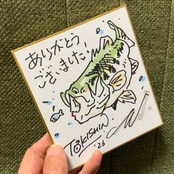 ありがとう
ございました
TOKISHIN
'26